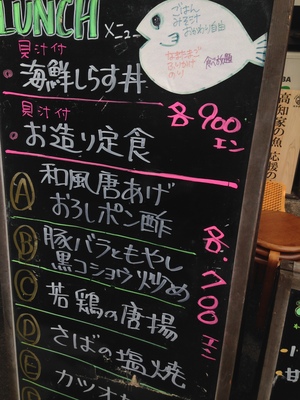 LUNCH メニュー
ごはん
みそ汁
おかわり自由
なまたまご
ふりかけ
のり
食べ放題
貝汁付
海鮮しらす丼
貝汁付
各900エン
お造り定食
A 和風唐あげ
おろしポン酢
B 豚バラともやし
黒コショウ炒め
各700エン
C 若鶏の唐揚
D さばの塩焼
E カツオ
高知家の魚
応援の